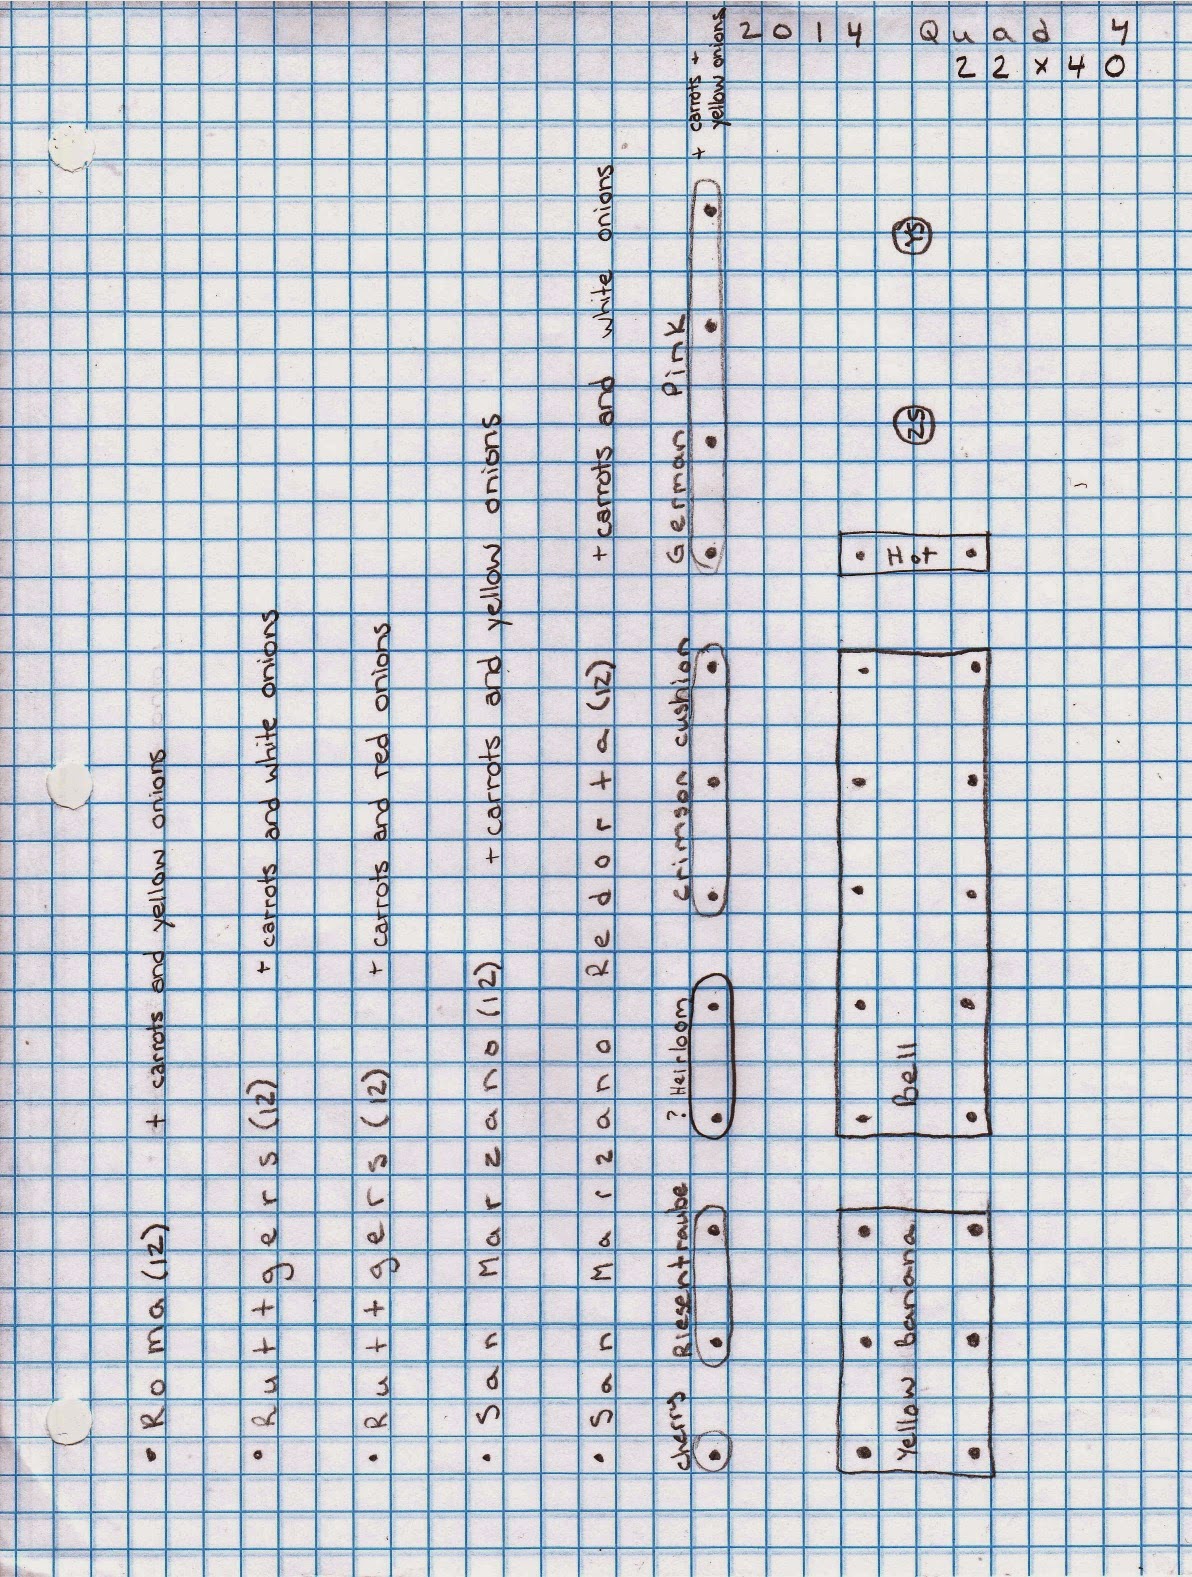 2014 Quad 4
22x40
• Roma (12) + carrots and yellow onions
• Ruttgers (12) + carrots and white onions
• Ruttgers (12) + carrots and red onions
• San Marzano (12) + carrots and yellow onions
• San Marzano Redorta (12) + carrots and white onions
cherry Riesentraube ? Heirloom crimson cushion German Pink + carrots +
yellow onions
Yellow Banana Bell Hot ZS YS